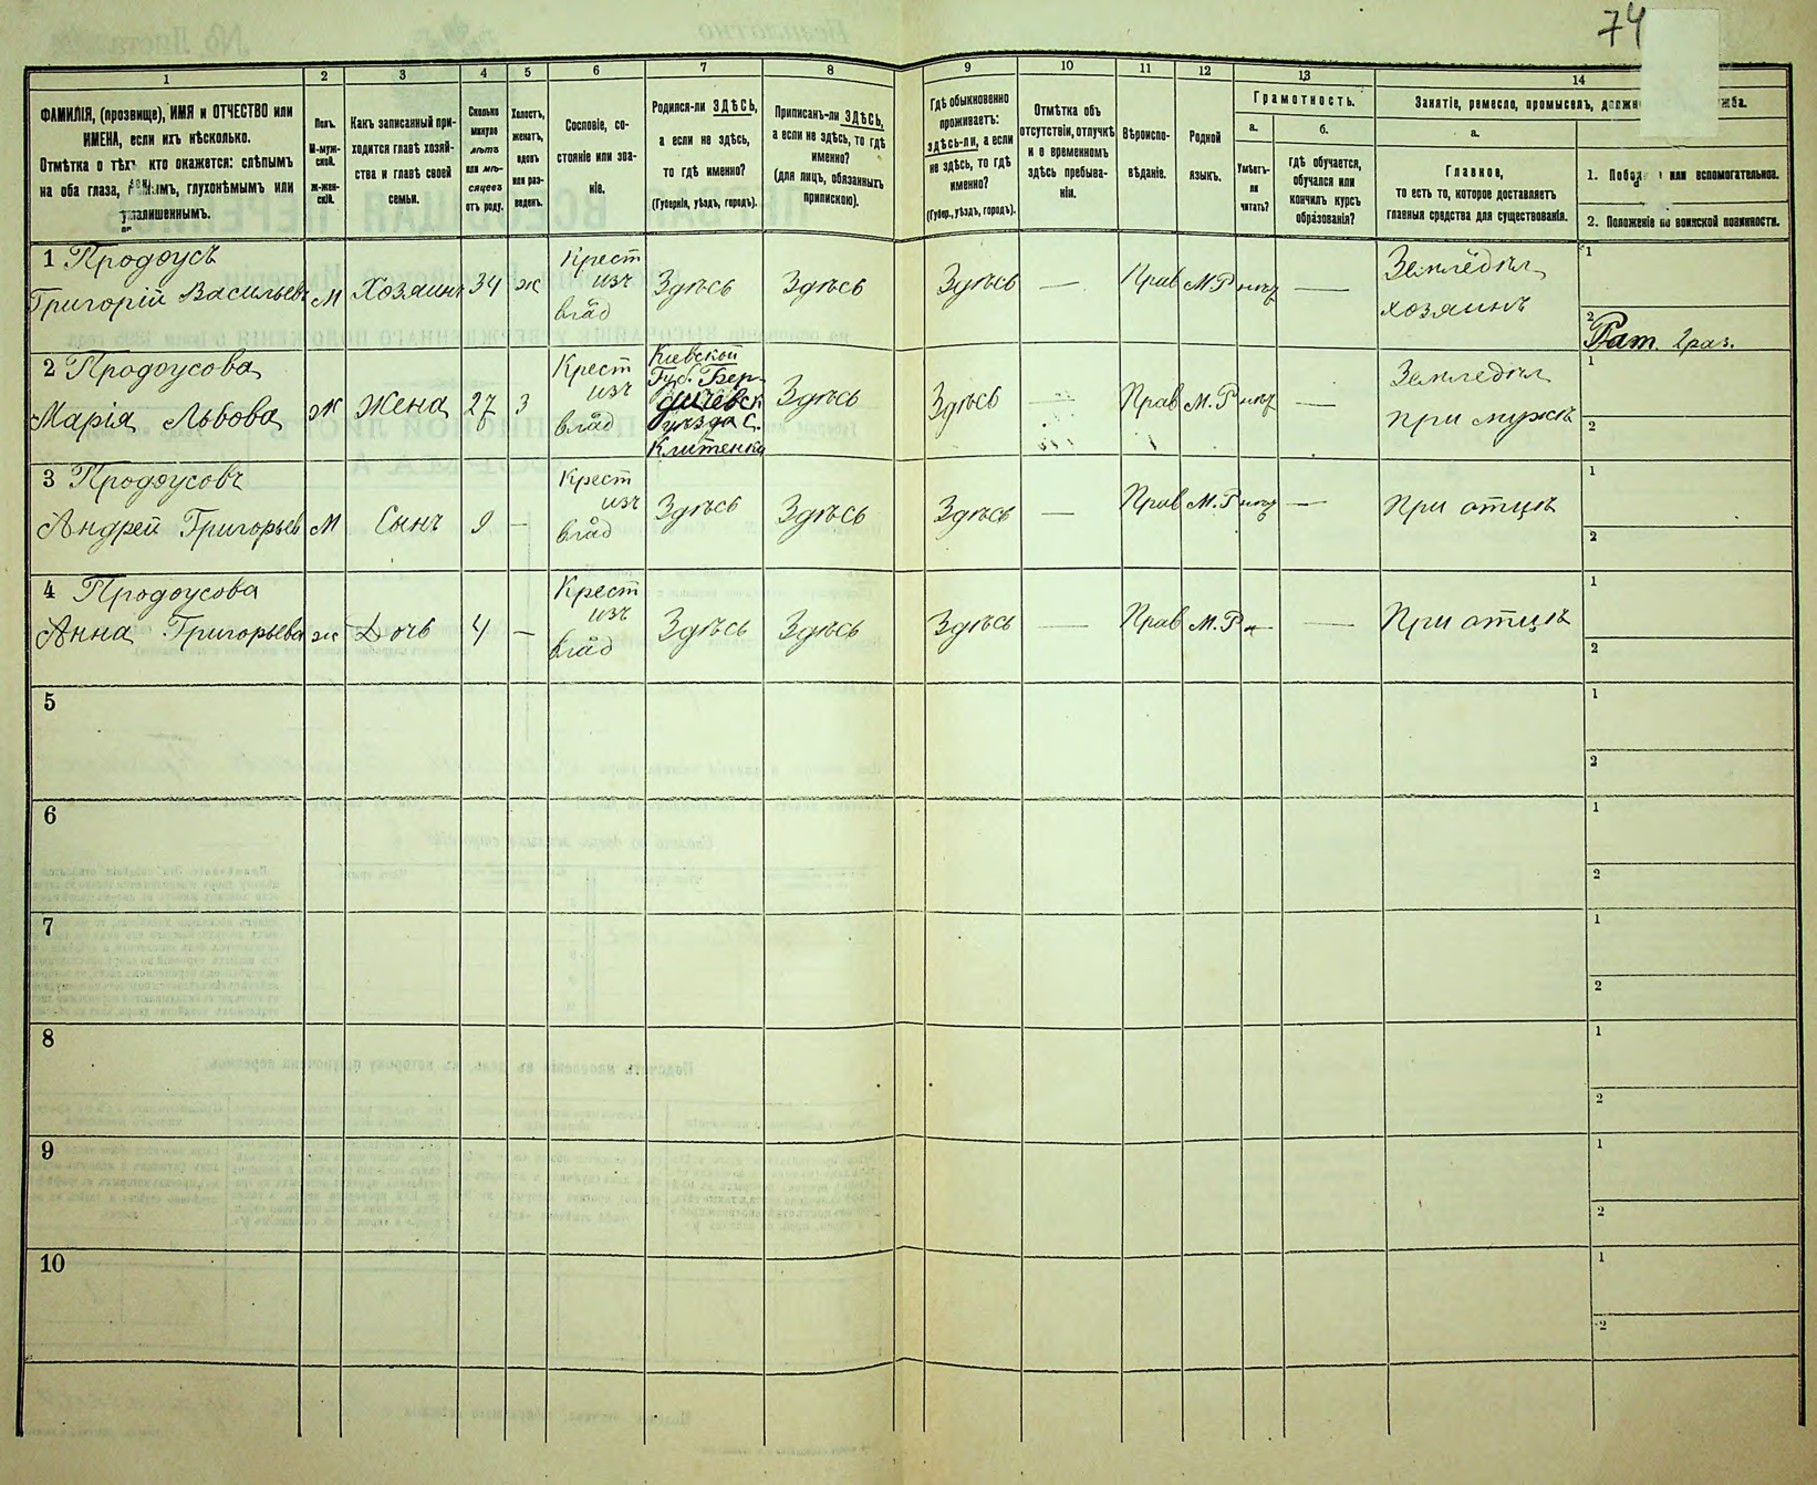 74
1 2 3 4 5 6 7 8 9 10 11 12 13 14
ФАМИЛІЯ, (прозвище), ИМЯ и ОТЧЕСТВО или
ИМЕНА, если ихъ нѣсколько.
Отмѣтка о тѣхъ кто окажется: слѣпымъ
на оба глаза, нѣмымъ, глухонѣмымъ или
умалишеннымъ.
Полъ.
М-муж-
ской.
Ж-жен-
скій.
Какъ записанный при-
ходится главѣ хозяй-
ства и главѣ своей
семьи.
Сколько
минуло
лѣтъ
или мѣ-
сяцевъ
отъ роду.
Холостъ,
женатъ,
вдовъ
или раз-
веденъ.
Сословіе, со-
стояніе или зва-
ніе.
Родился-ли ЗДѢСЬ,
а если не здѣсь,
то гдѣ именно?
(Губернія, уѣздъ, городъ).
Приписанъ-ли ЗДѢСЬ,
а если не здѣсь, то гдѣ
именно?
(для лицъ, обязанныхъ
припискою).
Гдѣ обыкновенно
проживаетъ:
здѣсь-ли, а если
не здѣсь, то гдѣ
именно?
(Губер., уѣздъ, городъ).
Отмѣтка объ
отсутствіи, отлучкѣ
и о временномъ
здѣсь пребыва-
ніи.
Вѣроиспо-
вѣданіе.
Родной
языкъ.
Грамотность.
а.
Умѣетъ-
ли
читать?
б.
гдѣ обучается,
обучался или
кончилъ курсъ
образованія?
Занятіе, ремесло, промыселъ, должн жба.
а.
Главное,
то есть то, которое доставляетъ
главныя средства для существованія.
1. Побо или вспомогательное.
2. Положеніе по воинской повинности.
1 Продоусъ
Григорій Васильевъ
М
Хозяинъ
34
ж
Крест
изъ
влад
Здѣсь
Здѣсь
Здѣсь
—
Прав
М.Р
нѣт
—
Земледѣл
хозяинъ
1
2
Рат. 2 раз.
2 Продоусова
Марія Львова
Ж
Жена
27
З
Крест
изъ
влад
Кіевской
Губ. Бер-
дичевск
уѣзда С.
Клитенка
Здѣсь
Здѣсь
—
Прав
М.Р
нѣт
—
Земледѣл
при мужѣ
1
2
3 Продоусовъ
Андрей Григорьев
М
Сынъ
9
—
Крест
изъ
влад
Здѣсь
Здѣсь
Здѣсь
—
Прав
М.Р
нѣт
—
При отцѣ
1
2
4 Продоусова
Анна Григорьева
ж
Дочь
4
—
Крест
изъ
влад
Здѣсь
Здѣсь
Здѣсь
—
Прав
М.Р
—
—
При отцѣ
1
2
5
1
2
6
1
2
7
1
2
8
1
2
9
1
2
10
1
2